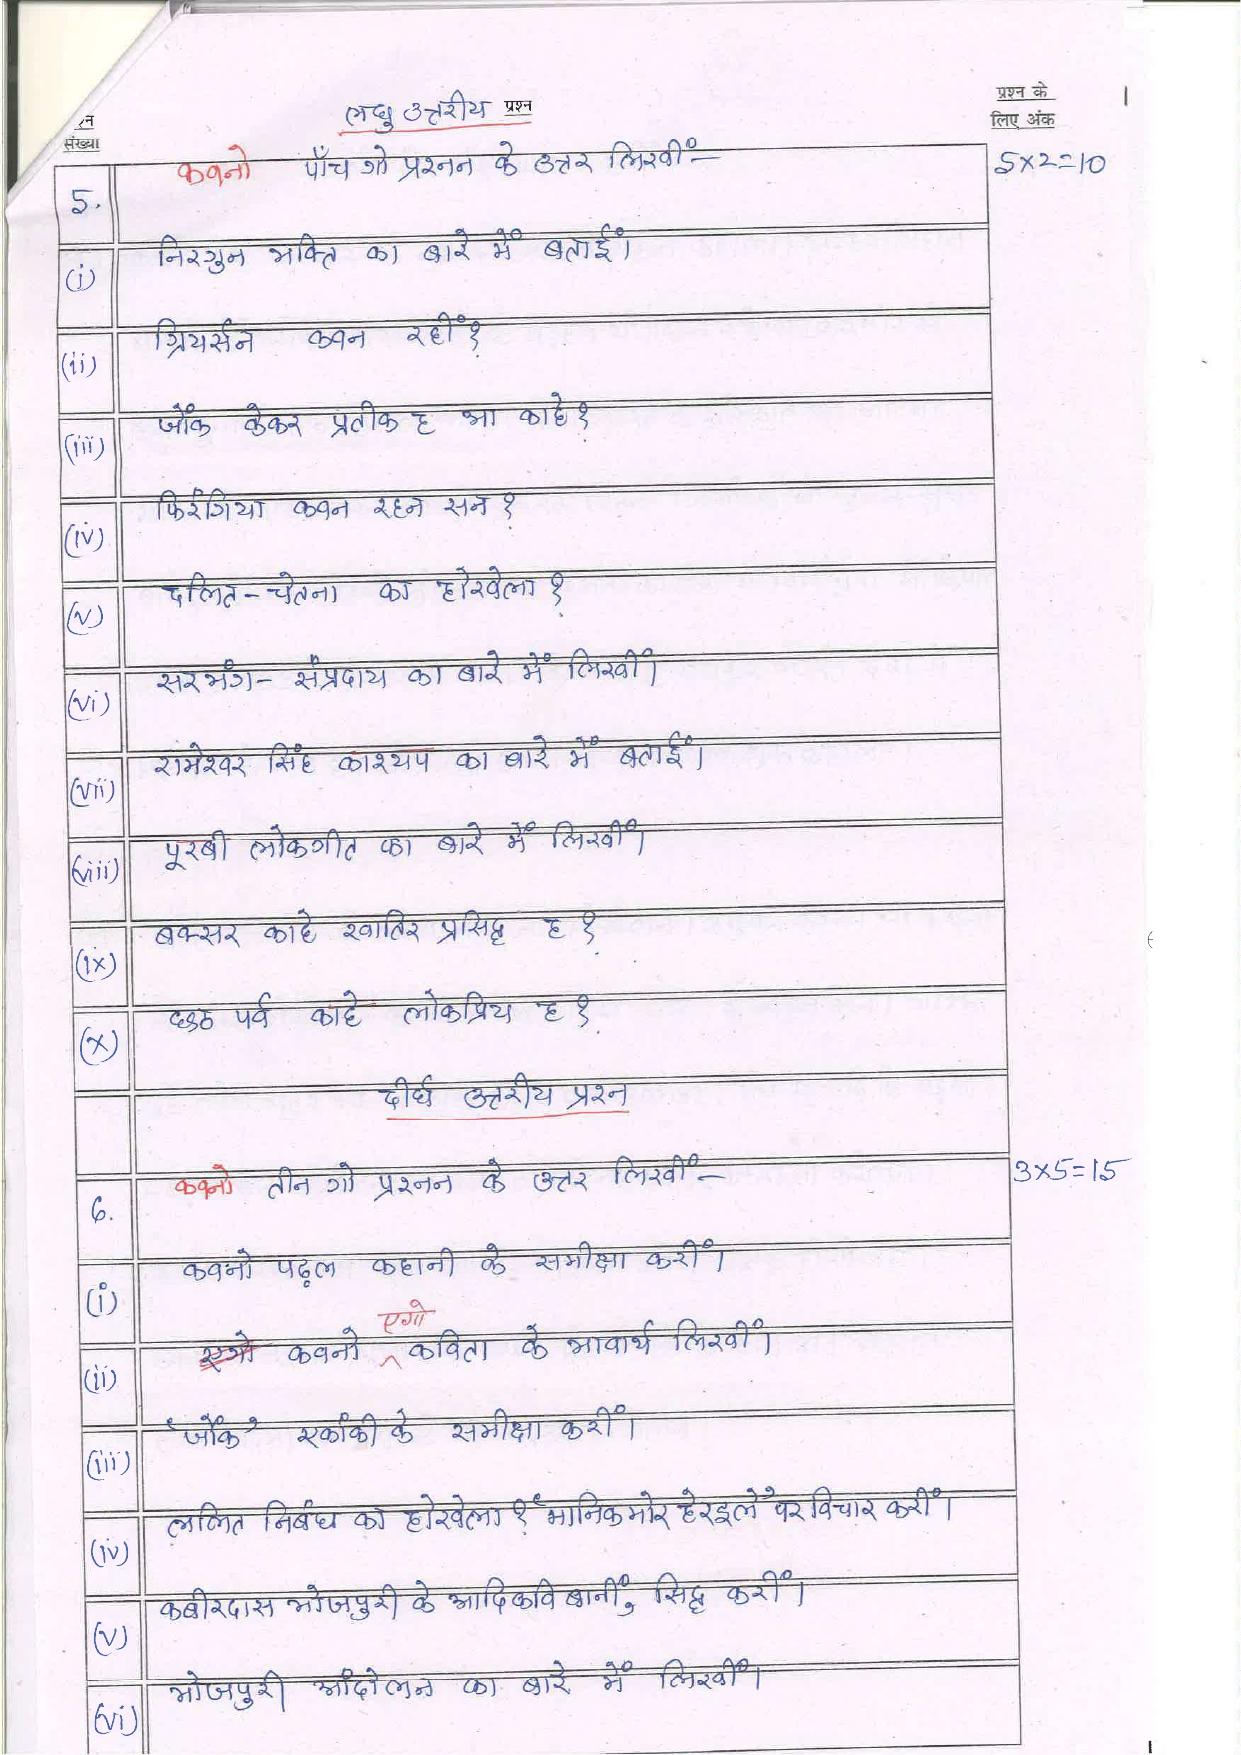 लघु उत्तरीय प्रश्न
प्रश्न के
लिए अंक
संख्या
5. कवनो पाँच गो प्रश्नन के उत्तर लिखीं– 5×2=10
(i) निरगुन भक्ति का बारे में बताईं।
(ii) ग्रियर्सन कवन रहीं?
(iii) जोंक केकर प्रतीक ह आ काहे?
(iv) फिरंगिया कवन रहन सन?
(v) दलित-चेतना का होखेला?
(vi) सरभंग- संप्रदाय का बारे में लिखीं।
(vii) रामेश्वर सिंह काश्यप का बारे में बताईं।
(viii) पूरबी लोकगीत का बारे में लिखीं।
(ix) बक्सर काहे खातिर प्रसिद्ध ह?
(x) छठ पर्व काहे लोकप्रिय ह?
दीर्घ उत्तरीय प्रश्न
6. कवनो तीन गो प्रश्नन के उत्तर लिखीं– 3×5=15
(i) कवनो पढ़ल कहानी के समीक्षा करीं।
(ii) कवनो एगो कविता के भावार्थ लिखीं।
(iii) 'जोंक' एकांकी के समीक्षा करीं।
(iv) ललित निबंध का होखेला? "मानिक मोर हेरइले" पर विचार करीं।
(v) कबीरदास भोजपुरी के आदिकवि बानीं, सिद्ध करीं।
(vi) भोजपुरी आंदोलन का बारे में लिखीं।